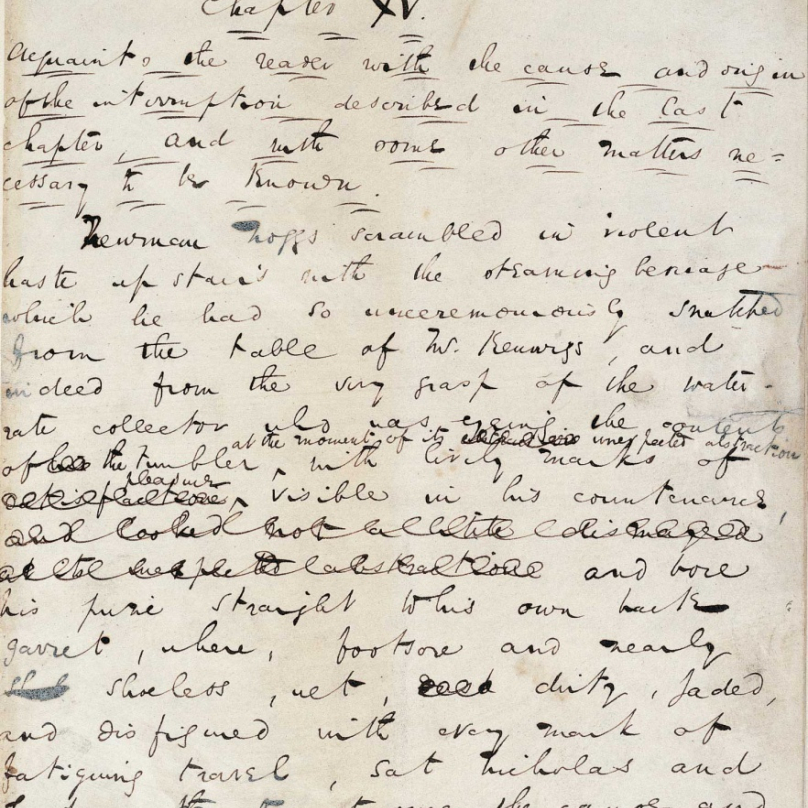 Chapter XV.
Acquaints the reader with the cause and origin
of the interruption described in the last
chapter, and with some other matters ne=
cessary to be known.
Newman Noggs scrambled in violent
haste up stairs with the steaming beverage
which he had so unceremoniously snatched
from the table of Mr. Kenwigs, and
indeed from the very grasp of the water-
rate collector who was eyeing the contents
at the moment of its unexpected abstraction
of the tumbler, with lively marks of
pleasure
visible in his countenance,
and looked not a little dismayed
at the unexpected abstraction and bore
his prize straight to his own back
garret, where, footsore and nearly
shoeless, wet, dirty, jaded,
and disfigured with every mark of
fatiguing travel, sat Nicholas and